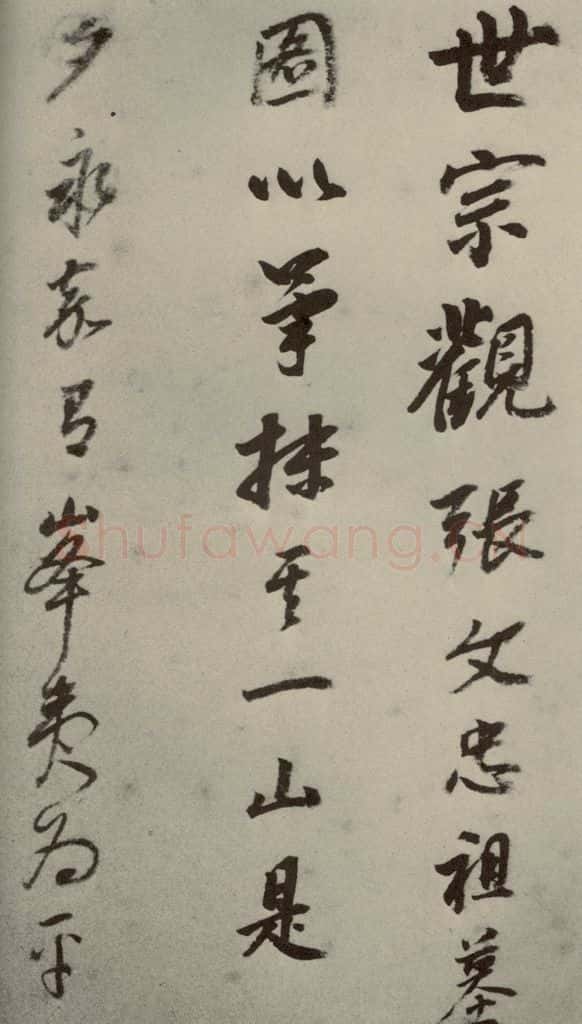 世宗觀張文忠祖墓
圖以筆抹其一山是
夕永嘉有峯夷為平
shufawang.cn